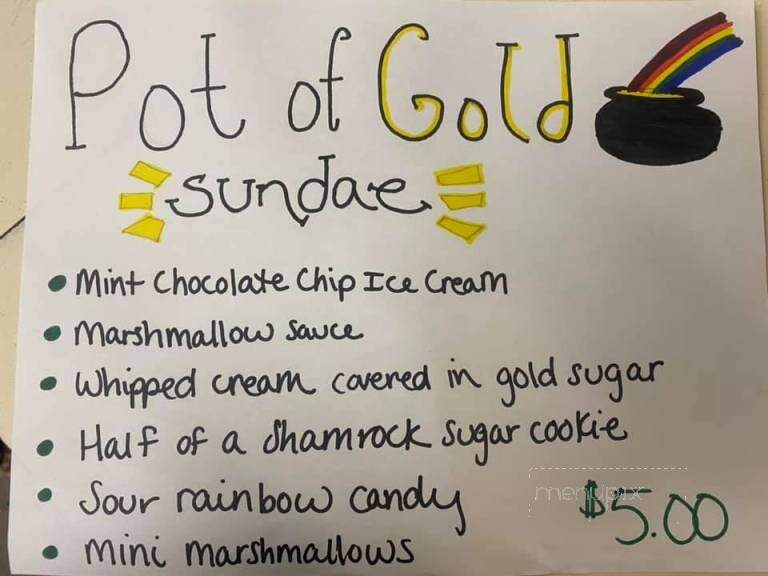 Pot of Gold
sundae
• Mint Chocolate Chip Ice Cream
• Marshmallow sauce
• Whipped cream covered in gold sugar
• Half of a Shamrock sugar cookie
• Sour rainbow candy
menupix
$5.00
• mini marshmallows